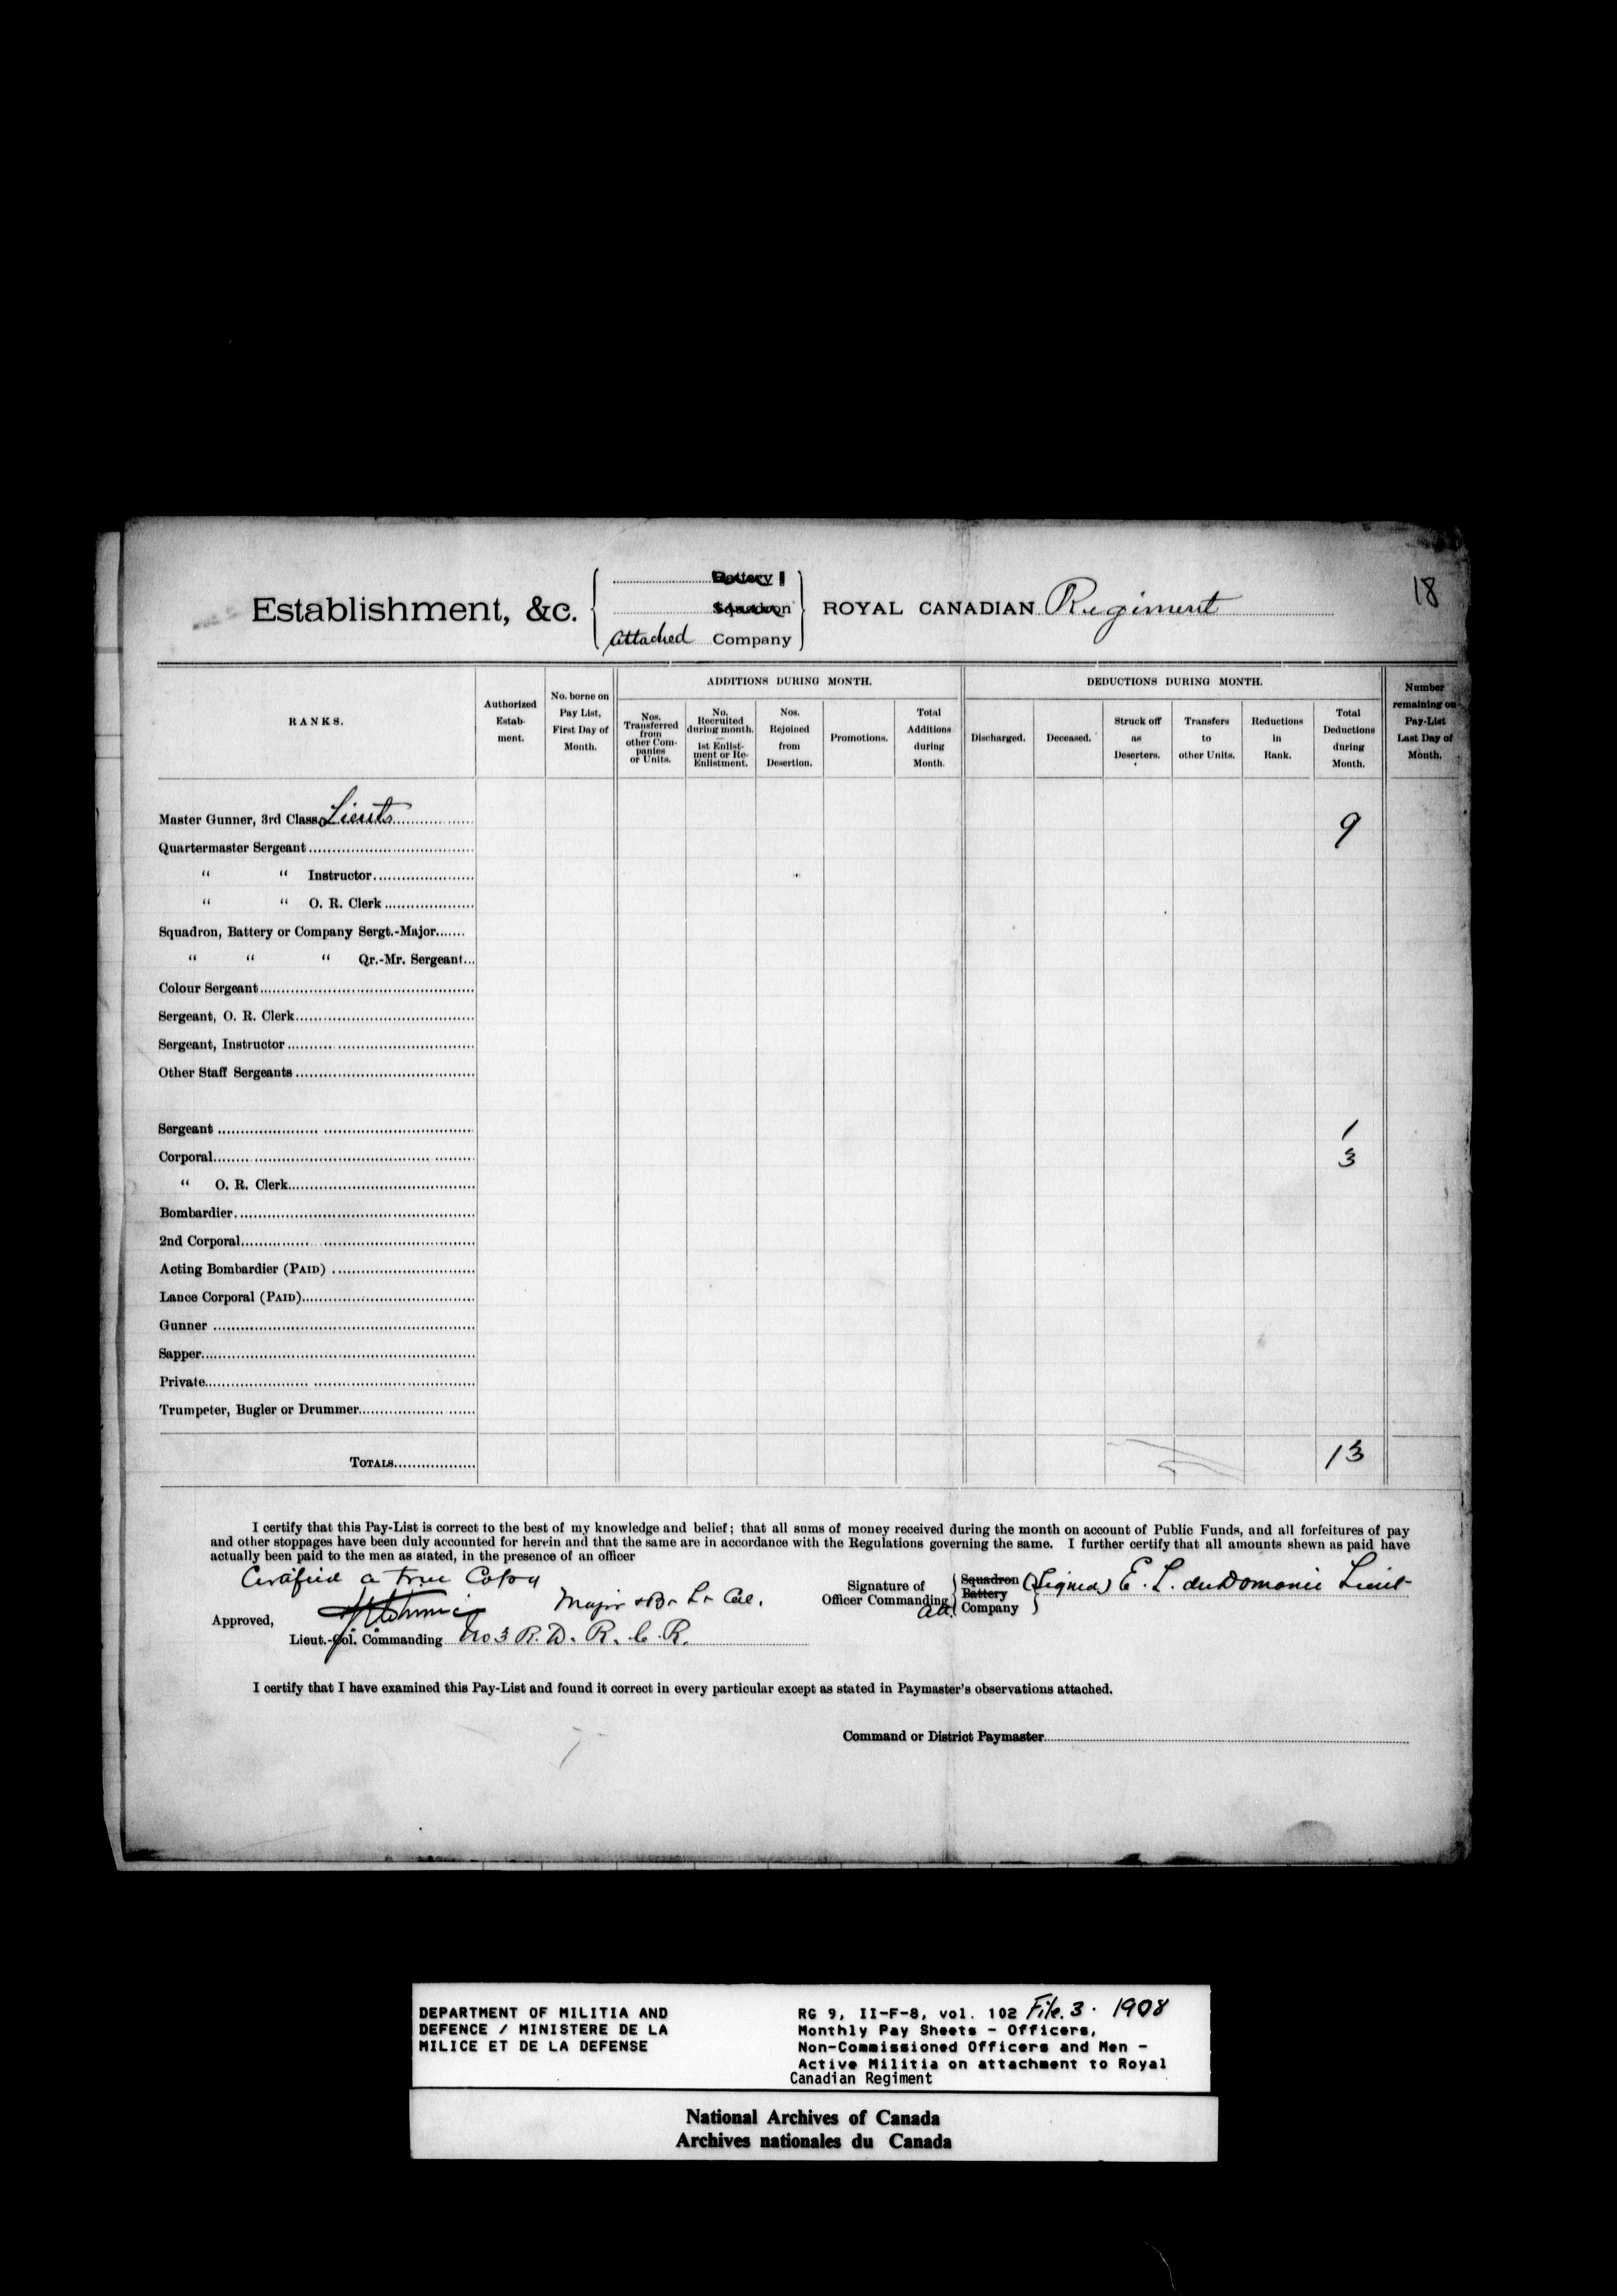 18
Establishment, &c.
Battery
Squadron
Attached Company
ROYAL CANADIAN Regiment
RANKS.
Authorized Estab- ment.
No. borne on Pay List, First Day of Month.
ADDITIONS DURING MONTH.
Nos. Transferred from other Com- panies or Units.
No. Recruited during month. — 1st Enlist- ment or Re- Enlistment.
Nos. Rejoined from Desertion.
Promotions.
Total Additions during Month.
DEDUCTIONS DURING MONTH.
Discharged.
Deceased.
Struck off as Deserters.
Transfers to other Units.
Reductions in Rank.
Total Deductions during Month.
Number remaining on Pay-List Last Day of Month.
Master Gunner, 3rd Class Lieuts 9
Quartermaster Sergeant
“ “ Instructor
“ “ O. R. Clerk
Squadron, Battery or Company Sergt.-Major
“ “ “ Qr.-Mr. Sergeant
Colour Sergeant
Sergeant, O. R. Clerk
Sergeant, Instructor
Other Staff Sergeants
Sergeant 1
Corporal 3
“ O. R. Clerk
Bombardier
2nd Corporal
Acting Bombardier (PAID)
Lance Corporal (PAID)
Gunner
Sapper
Private
Trumpeter, Bugler or Drummer
TOTALS 13
I certify that this Pay-List is correct to the best of my knowledge and belief; that all sums of money received during the month on account of Public Funds, and all forfeitures of pay
and other stoppages have been duly accounted for herein and that the same are in accordance with the Regulations governing the same. I further certify that all amounts shewn as paid have
actually been paid to the men as stated, in the presence of an officer
Certified a true Copy
Signature of Officer Commanding Att. Squadron Battery Company (Signed) E. L. duDomaine Lieut
Major & Br Lt Col.
Approved,
Lieut.-Col. Commanding No 3 R. D. R. C. R.
I certify that I have examined this Pay-List and found it correct in every particular except as stated in Paymaster's observations attached.
Command or District Paymaster
DEPARTMENT OF MILITIA AND
DEFENCE / MINISTERE DE LA
MILICE ET DE LA DEFENSE
RG 9, II-F-8, vol. 102 File. 3. 1908
Monthly Pay Sheets - Officers,
Non-Commissioned Officers and Men -
Active Militia on attachment to Royal
Canadian Regiment
National Archives of Canada
Archives nationales du Canada